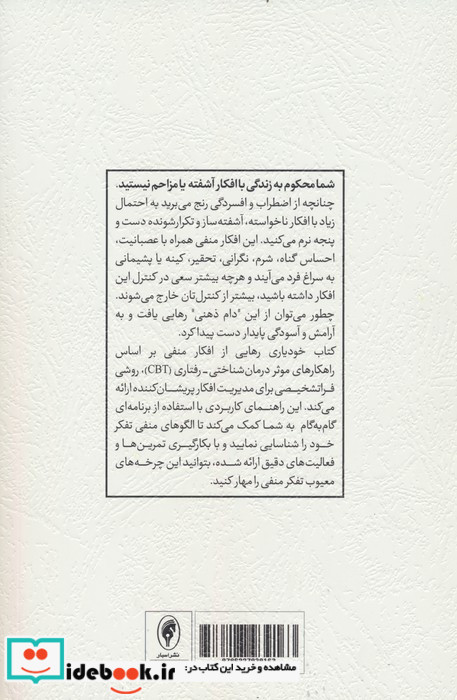 شما محکوم به زندگی با افکار آشفته یا مزاحم نیستید.
چنانچه از اضطراب و افسردگی رنج می‌برید به احتمال
زیاد با افکار ناخواسته، آشفته‌ساز و تکرارشونده دست و
پنجه نرم می‌کنید. این افکار منفی همراه با عصبانیت،
احساس گناه، شرم، نگرانی، تحقیر، کینه یا پشیمانی
به سراغ فرد می‌آیند و هرچه بیشتر سعی در کنترل این
افکار داشته باشید، بیشتر از کنترل‌تان خارج می‌شوند.
چطور می‌توان از این "دام ذهنی" رهایی یافت و به
آرامش و آسودگی پایدار دست پیدا کرد.
کتاب خودیاری رهایی از افکار منفی بر اساس
راهکارهای موثر درمان‌شناختی ـ رفتاری (CBT)، روشی
فراتشخیصی برای مدیریت افکار پریشان‌کننده ارائه
می‌کند. این راهنمای کاربردی با استفاده از برنامه‌ای
گام‌به‌گام به شما کمک می‌کند تا الگوهای منفی تفکر
خود را شناسایی نمایید و با بکارگیری تمرین‌ها و
فعالیت‌های دقیق ارائه شده، بتوانید این چرخه‌های
معیوب تفکر منفی را مهار کنید.
نشر اسبار
مشاهده و خرید این کتاب در:
iidebook.ir